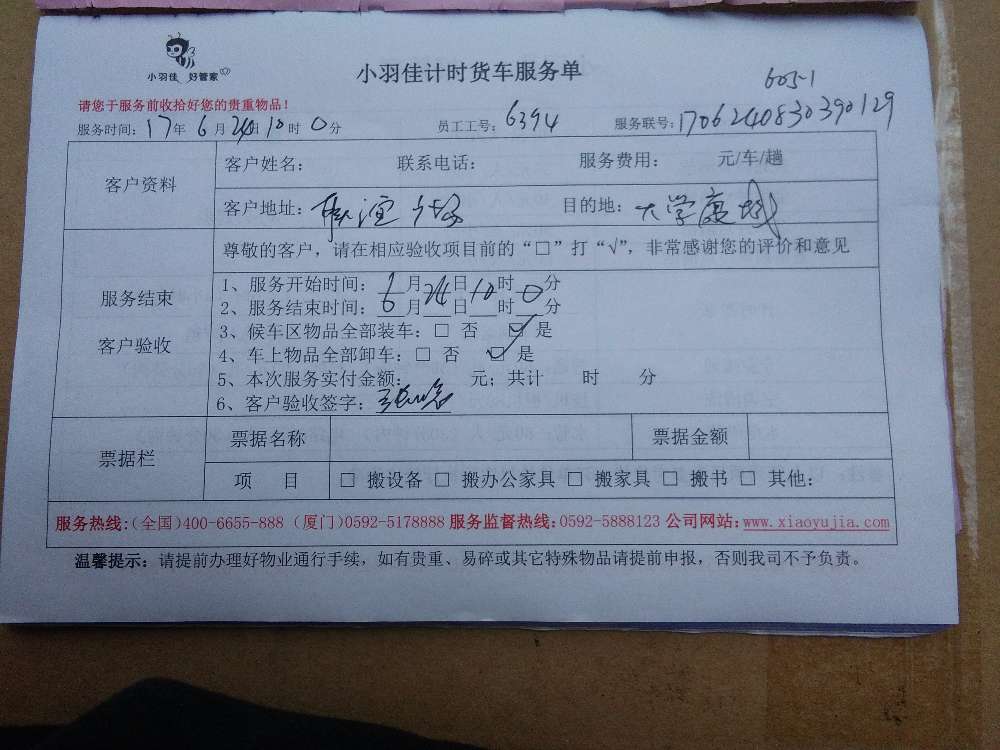 小羽佳 好管家
小羽佳计时货车服务单
605-1
请您于服务前收拾好您的贵重物品!
服务时间: 17年 6月 24日 10时 0分 员工工号: 6394 服务联号: 170624083039 0129
客户资料
客户姓名: 联系电话: 服务费用: 元/车/趟
客户地址: 联谊广场 目的地: 大学康城
尊敬的客户,请在相应验收项目前的“□”打“√”,非常感谢您的评价和意见
服务结束
客户验收
1、服务开始时间: 6月24日10时0分
2、服务结束时间: 6月 日 时 分
3、候车区物品全部装车: □ 否 ☑ 是
4、车上物品全部卸车: □ 否 ☑ 是
5、本次服务实付金额: 元; 共计 时 分
6、客户验收签字:
票据栏
票据名称 票据金额
项 目 □ 搬设备 □ 搬办公家具 □ 搬家具 □ 搬书 □ 其他:
服务热线:(全国)400-6655-888 (厦门)0592-5178888 服务监督热线:0592-5888123 公司网站:www.xiaoyujia.com
温馨提示: 请提前办理好物业通行手续, 如有贵重、易碎或其它特殊物品请提前申报, 否则我司不予负责。